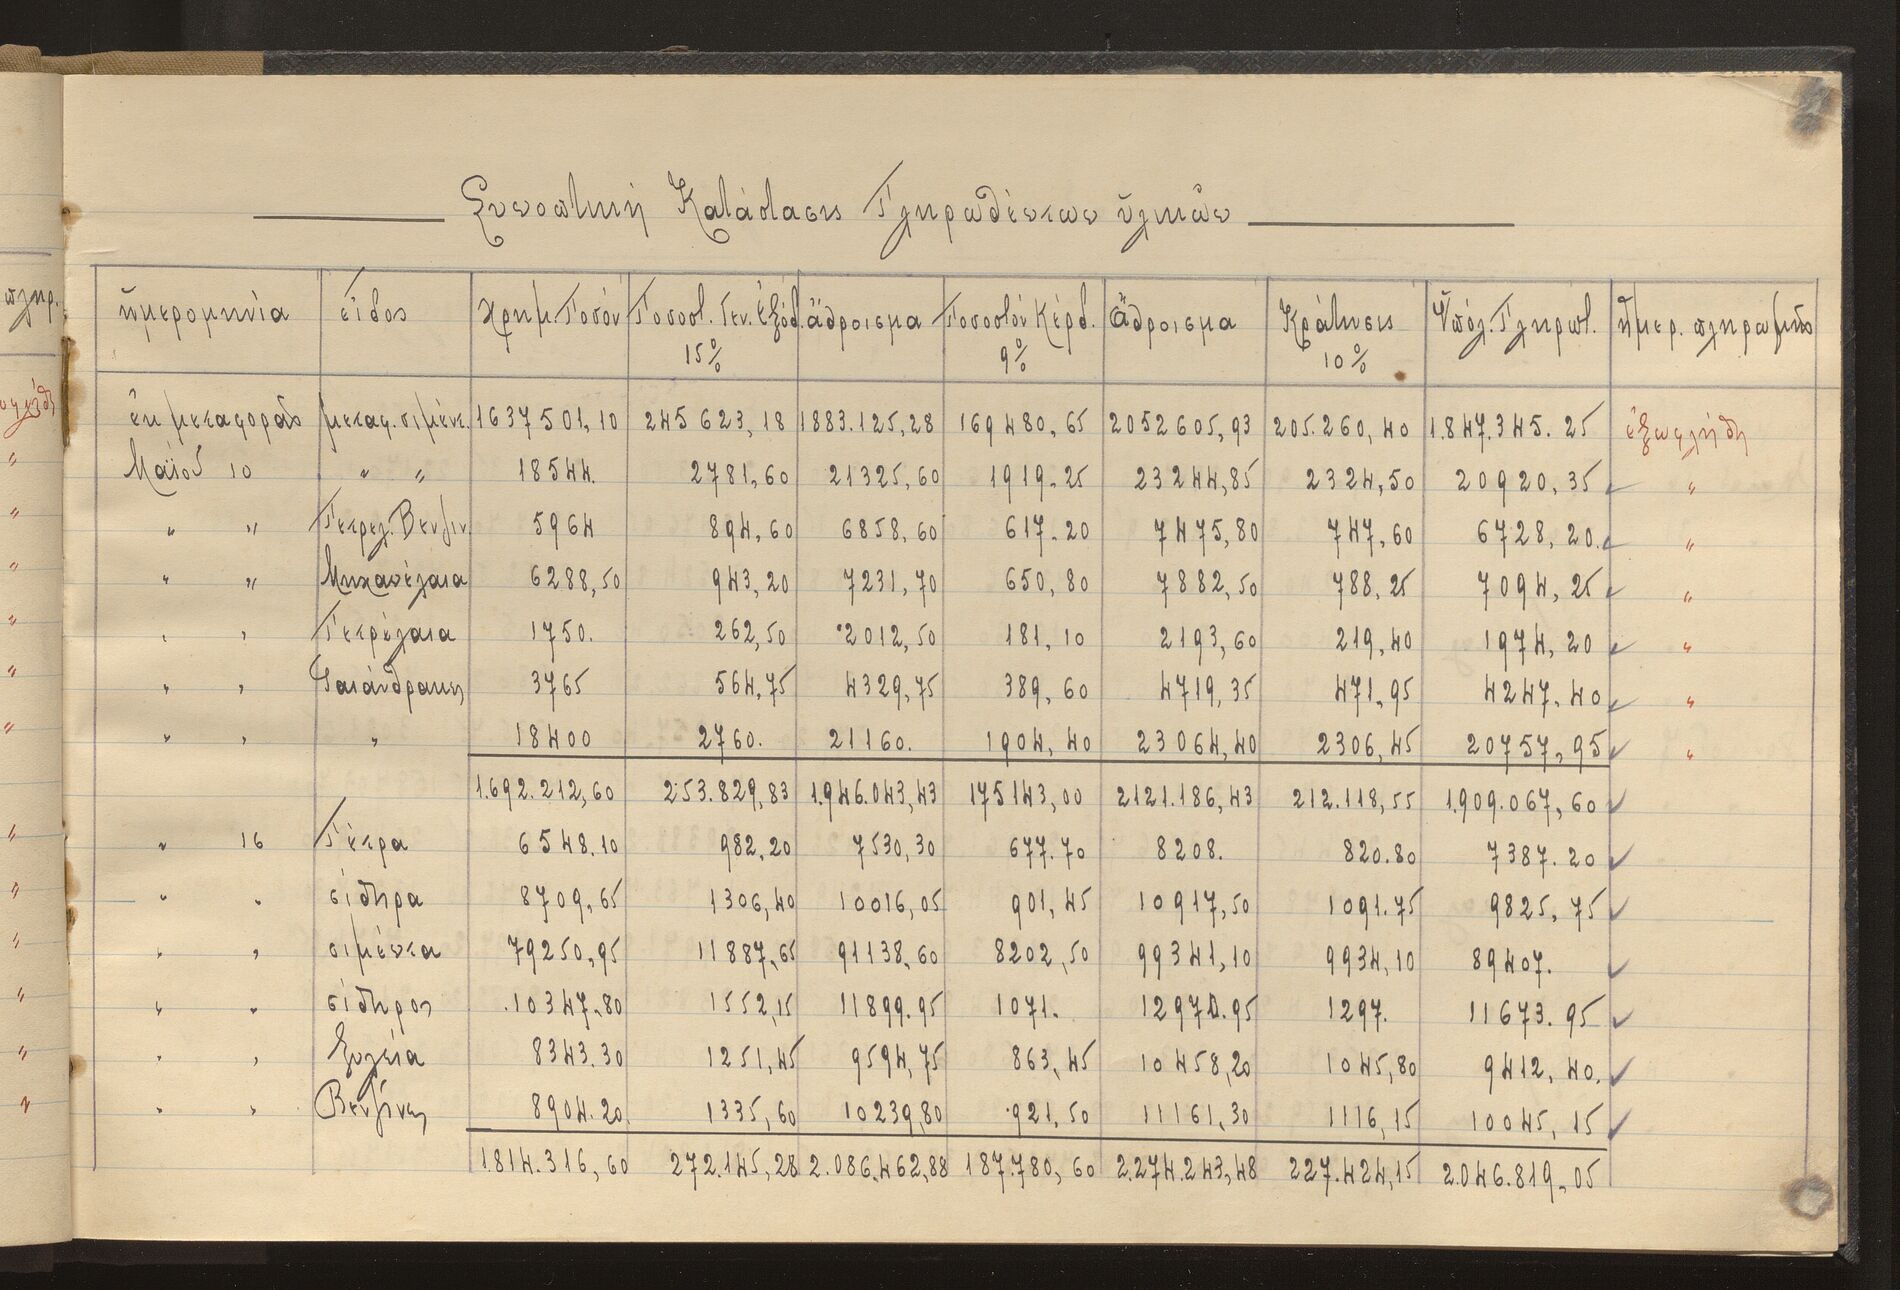 Συνοπτική Κατάστασις Πληρωθέντων ὑλικῶν
πληρ.
ἡμερομηνία εἶδος Χρημ. Ποσόν Ποσοστ. Γεν. ἐξόδ. 15% ἄθροισμα Ποσοστόν Κέρδ. 9% ἄθροισμα Κράτησις 10% Ὑπόλ. Πληρωτ. ἡμερ. πληρωμῆς
ἐκ μεταφορᾶς μεταφ. σιμέντ. 1637501,10 245623,18 1883.125,28 169480,65 2052605,93 205.260,40 1.847.345.25 ἐξωφλήθη
Μαΐου 10 " " 18544. 2781,60 21325,60 1919.25 23244,85 2324,50 20920,35 "
" " Πετρελ. Βενζιν. 5964 894,60 6858,60 617.20 7475,80 747,60 6728,20. "
" " Μηχανέλαια 6288,50 943,20 7231,70 650,80 7882,50 788,25 7094,25 "
" " Πετρέλαια 1750. 262,50 2012,50 181,10 2193,60 219,40 1974,20 "
" " Γαιάνθρακες 3765 564,75 4329,75 389,60 4719,35 471,95 4247,40 "
" " " 18400 2760. 21160. 1904,40 23064,40 2306,45 20757,95 "
1.692.212,60 253.829,83 1.946.043,43 175143,00 2121.186,43 212.118,55 1.909.067,60
" 16 Πέτρα 6548.10 982.20 7530,30 677.70 8208. 820.80 7387.20
" " σίδηρα 8709,65 1306,40 10016,05 901,45 10917,50 1091.75 9825,75
" " σιμέντα 79250,95 11887,65 91138,60 8202,50 99341,10 9934,10 89407.
" " σίδηρος 10347.80 1552,15 11899.95 1071. 12970.95 1297. 11673.95
" " ξυλεία 8343.30 1251,45 9594,75 863,45 10458,20 1045,80 9412,40.
" " Βενζίνες 8904.20 1335,60 10239,80 921,50 11161,30 1116,15 10045,15
1.814.316,60 272.145,28 2.086.462,88 187.780,60 2.274.243,48 227.424,15 2.046.819,05